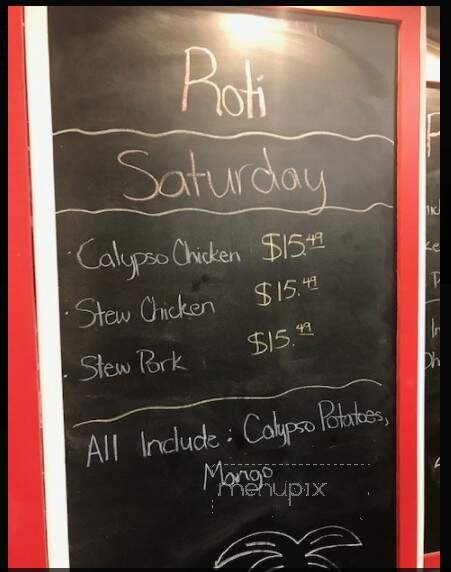 Roti
Saturday
· Calypso Chicken $15.49
· Stew Chicken $15.49
· Stew Pork $15.49
All Include: Calypso Potatoes,
Mango
menupix